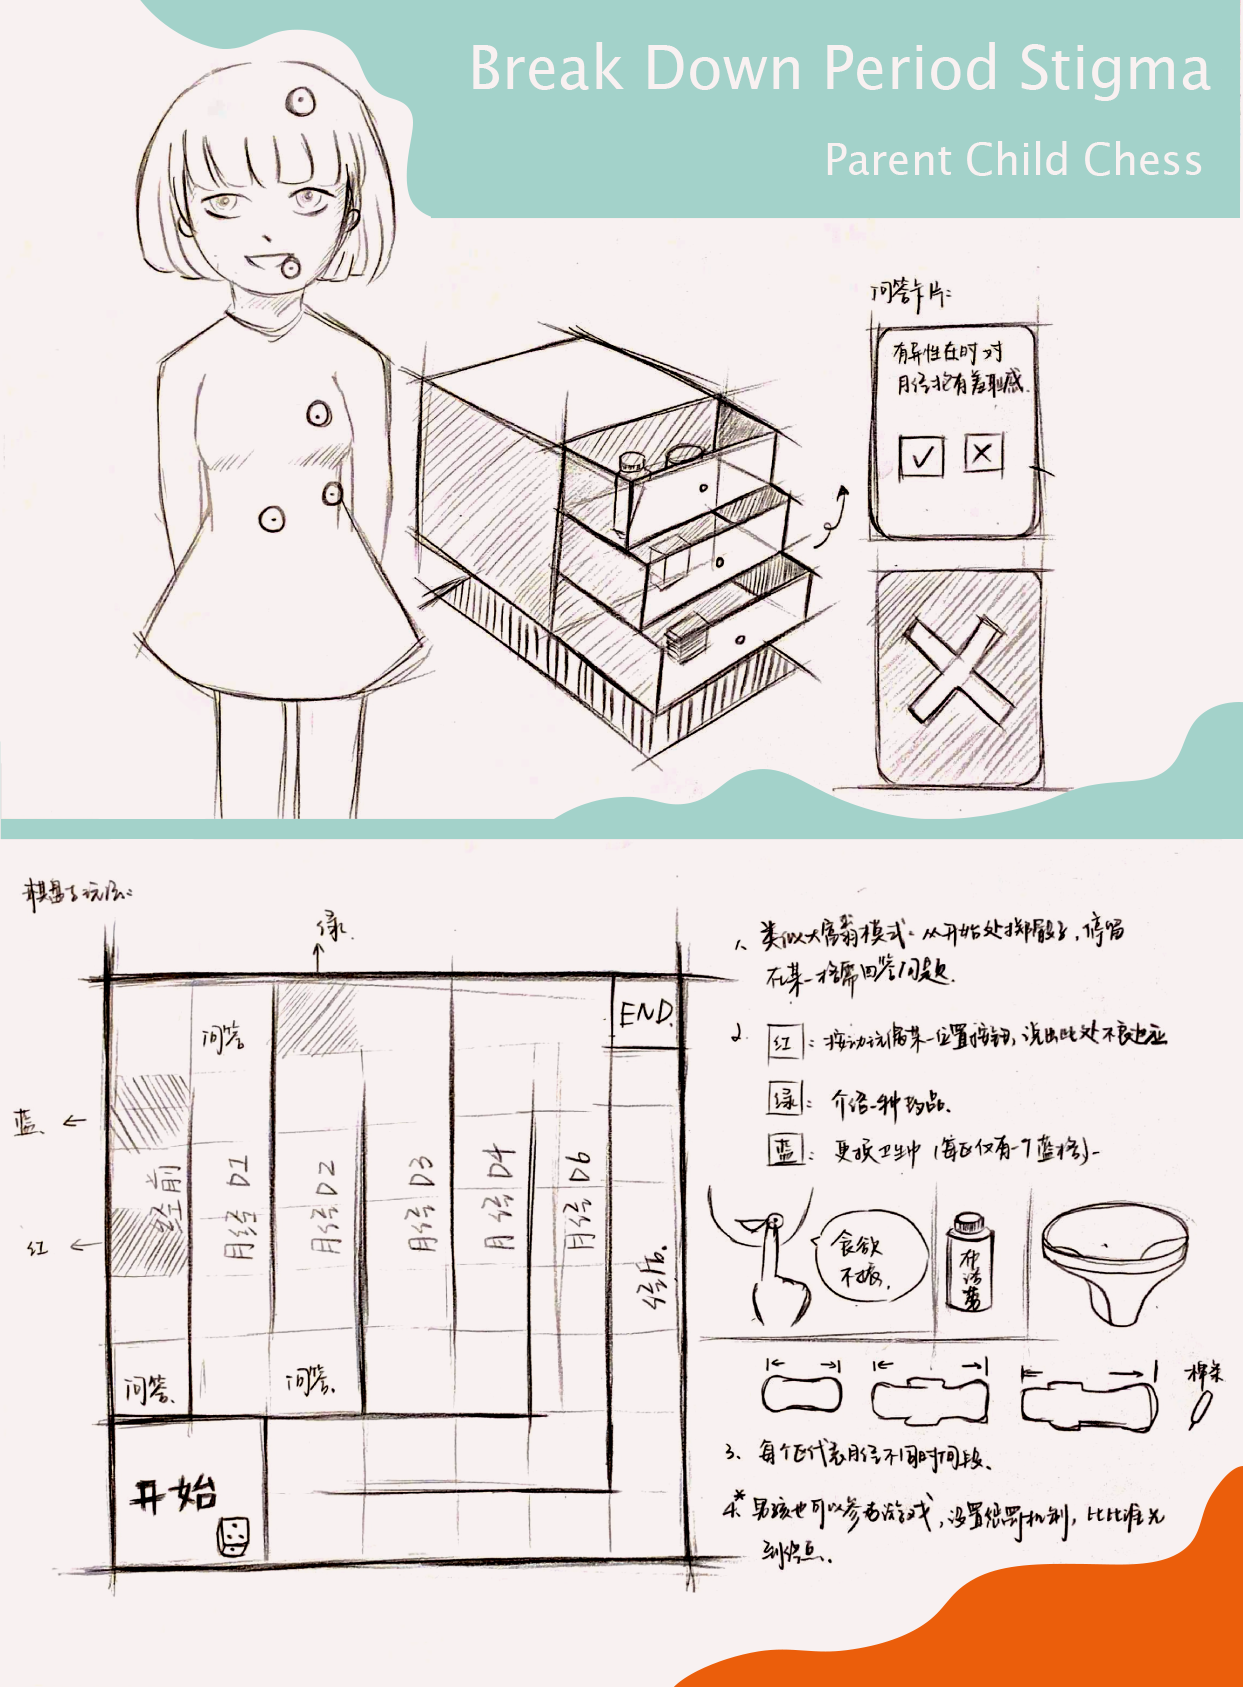 Break Down Period Stigma
Parent Child Chess
问答卡片:
有异性在时对
月经抱有羞耻感.
棋盘与玩法:
绿.
END.
问答
蓝
红
经前
月经 D1
月经 D2
月经 D3
月经 D4
月经 D6
经后.
问答.
问答.
开始
1、类似大富翁模式: 从开始处掷骰子, 停留
在某一格需回答问题.
2. 红: 按动玩偶某一位置按钮, 说出此处不良反应
绿: 介绍一种药品.
蓝: 更换卫生巾 (每区仅有一个蓝格)
食欲
不振.
布洛芬
棉条
3、每个区代表月经不同时间段.
4.* 男孩也可以参与游戏, 设置惩罚机制, 比比谁先
到终点.